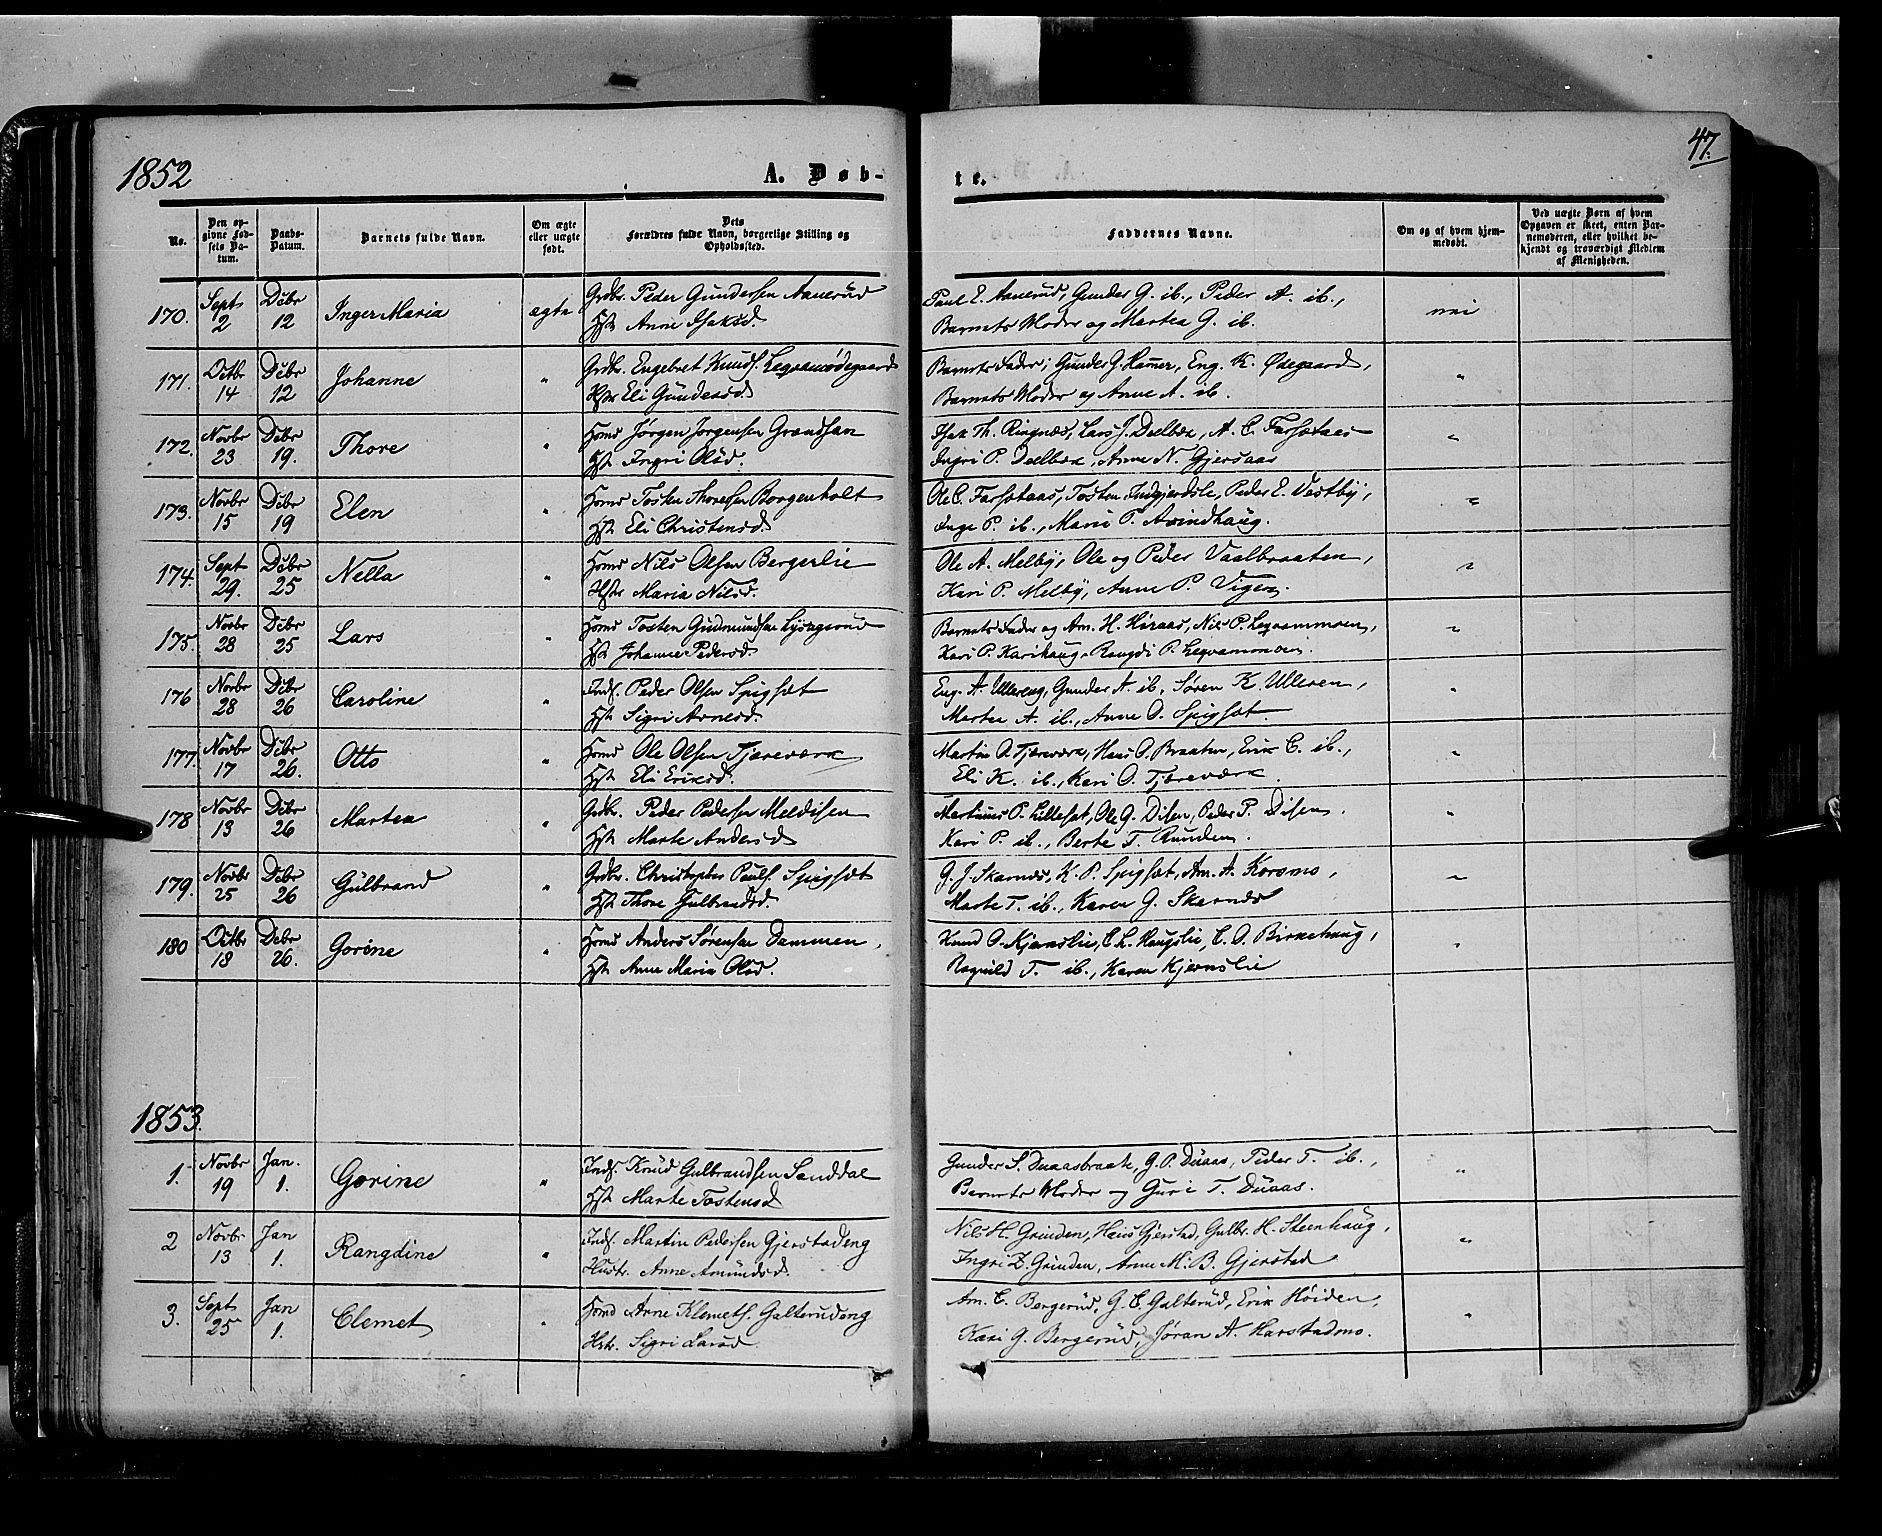 1852
A. Døb-
te.
47.
No.
Den op-
givne Fød-
sels Da-
tum.
Daabs-
Datum.
Barnets fulde Navn.
Om ægte
eller uægte
født.
Dets
Forældres fulde Navn, borgerlige Stilling og
Opholdssted.
Faddernes Navne.
Om og af hvem hjem-
medøbt.
Ved uægte Børn af hvem
Opgaven er skeet, enten Bar-
nemoderen, eller hvilket be-
kjendt og troværdigt Medlem
af Menigheden.
170. Sept 2 Dcbr 12 Inger Maria ægte Grdbr. Peder Gundersen Aanerud
Hst. Anne Isaksd.
Paul E. Aanerud, Gunder G. ib., Peder A. ib.,
Barnets Moder og Martea G. ib.
nei
171. Octbr 14 Dcbr 12 Johanne " Grdbr. Engebret Knuds. Legvamødegaard
Hstr Eli Gundersd.
Barnets Fader, Gunder G. Hamer, Eng. K. Ødegaard,
Barnets Moder og Anne A. ib.
"
172. Novbr 23 Dcbr 19. Thore " Hsmd Jørgen Jørgensen Grandsan
Hst. Ingri Olsd.
Isak Th. Ringnæs, Lars J. Dælbæk, A. C. Farsætaas
Ingri P. Dælbæk, Anne N. Gjersaas
"
173. Novbr 15 Dcbr 19 Elen " Hsmd Tosten Thoresen Borgenholt
Hst. Eli Christensd.
Ole C. Farsætaas, Tosten Indgjerdsle, Peder E. Vestby,
Inge P. ib., Marie P. Arindhaug.
"
174. Sept 29. Dcbr 25 Nella " Hsmd Nils Olsen Bergerlie
Hstr Maria Nilsd.
Ole A. Melby, Ole og Peder Vaalbraaten,
Kari P. Melby, Anne P. Viger.
"
175. Novbr 28 Dcbr 25 Lars " Hsmd Tosten Gudmundsen Lysagerud
Hst. Johanne Pedersd.
Barnets Fader og Am. H. Høraas, Nils P. Legvammoen,
Kari P. Karihaug, Rangdi P. Legvammoen.
"
176 Novbr 28 Dcbr 26 Caroline " Inds. Peder Olsen Spigset
Hst. Sigri Arnesd.
Eng. A. Ullereng, Gunder A. ib, Søren K. Ulleren,
Martea A. ib., Anne O. Spigset.
"
177. Novbr 17 Dcbr 26. Otto " Hsmd Ole Olsen Tjæreværk
Hst. Eli Eriksd.
Martin O. Tjæreværk, Hans O. Braaten, Erik C. ib.,
Eli K. ib., Kari O. Tjæreværk.
"
178 Novbr 13 Dcbr 26 Martea " Grdbr. Peder Pedersen Meldisen
Hst. Marte Andersd
Martinus P. Lilleset, Ole G. Disen, Peder P. Disen.
Kari P. ib., Berte T. Runden.
"
179. Novbr 25 Dcbr 26 Gulbrand " Grdbr. Christopher Pauls. Spigset
Hst. Thore Gulbrandsd.
G. J. Skarnes, K. P. Spigset, Am. A. Korsmo,
Marte T. ib., Karen G. Skarnes
"
180 Octbr 18 Dcbr 26. Gorine " Hsmd Anders Sørensen Dammen,
Hst. Anne Maria Olsd.
Knud O. Kjernslie, C. L. Haugslie, C. O. Birkehaug,
Ragnild T. ib., Karen Kjernslie
"
1853.
1. Novbr 19 Jan. 1. Gorine " Inds. Knud Gulbrandsen Sanddal
Hst. Marte Tostensd
Gunder S. Duaasbraate, G. P. Duaas, Peder T. ib.,
Barnets Moder og Guri T. Duaas.
"
2 Novbr 13 Jan 1. Rangdine " Inds. Martin Pedersen Gjerstadeng
Hustr. Anne Amundsd.
Nils H. Grinden, Hans Gjerstad, Gulbr. H. Steenhaug,
Ingri Z. Grinden, Anne M. B. Gjerstad
"
3. Sept 25 Jan 1. Clemet " Hsmd Arne Klemets. Galterudeng
Hstr. Sigri Larsd
Am. C. Bergerud, G. C. Galterud, Erik Høiden,
Kari G. Bergerud, Jøran A. Harstadmo.
"